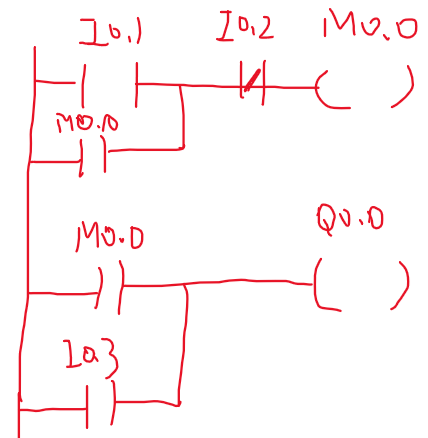 I0.1 I0.2 M0.0
M0.0
M0.0 Q0.0
I0.3